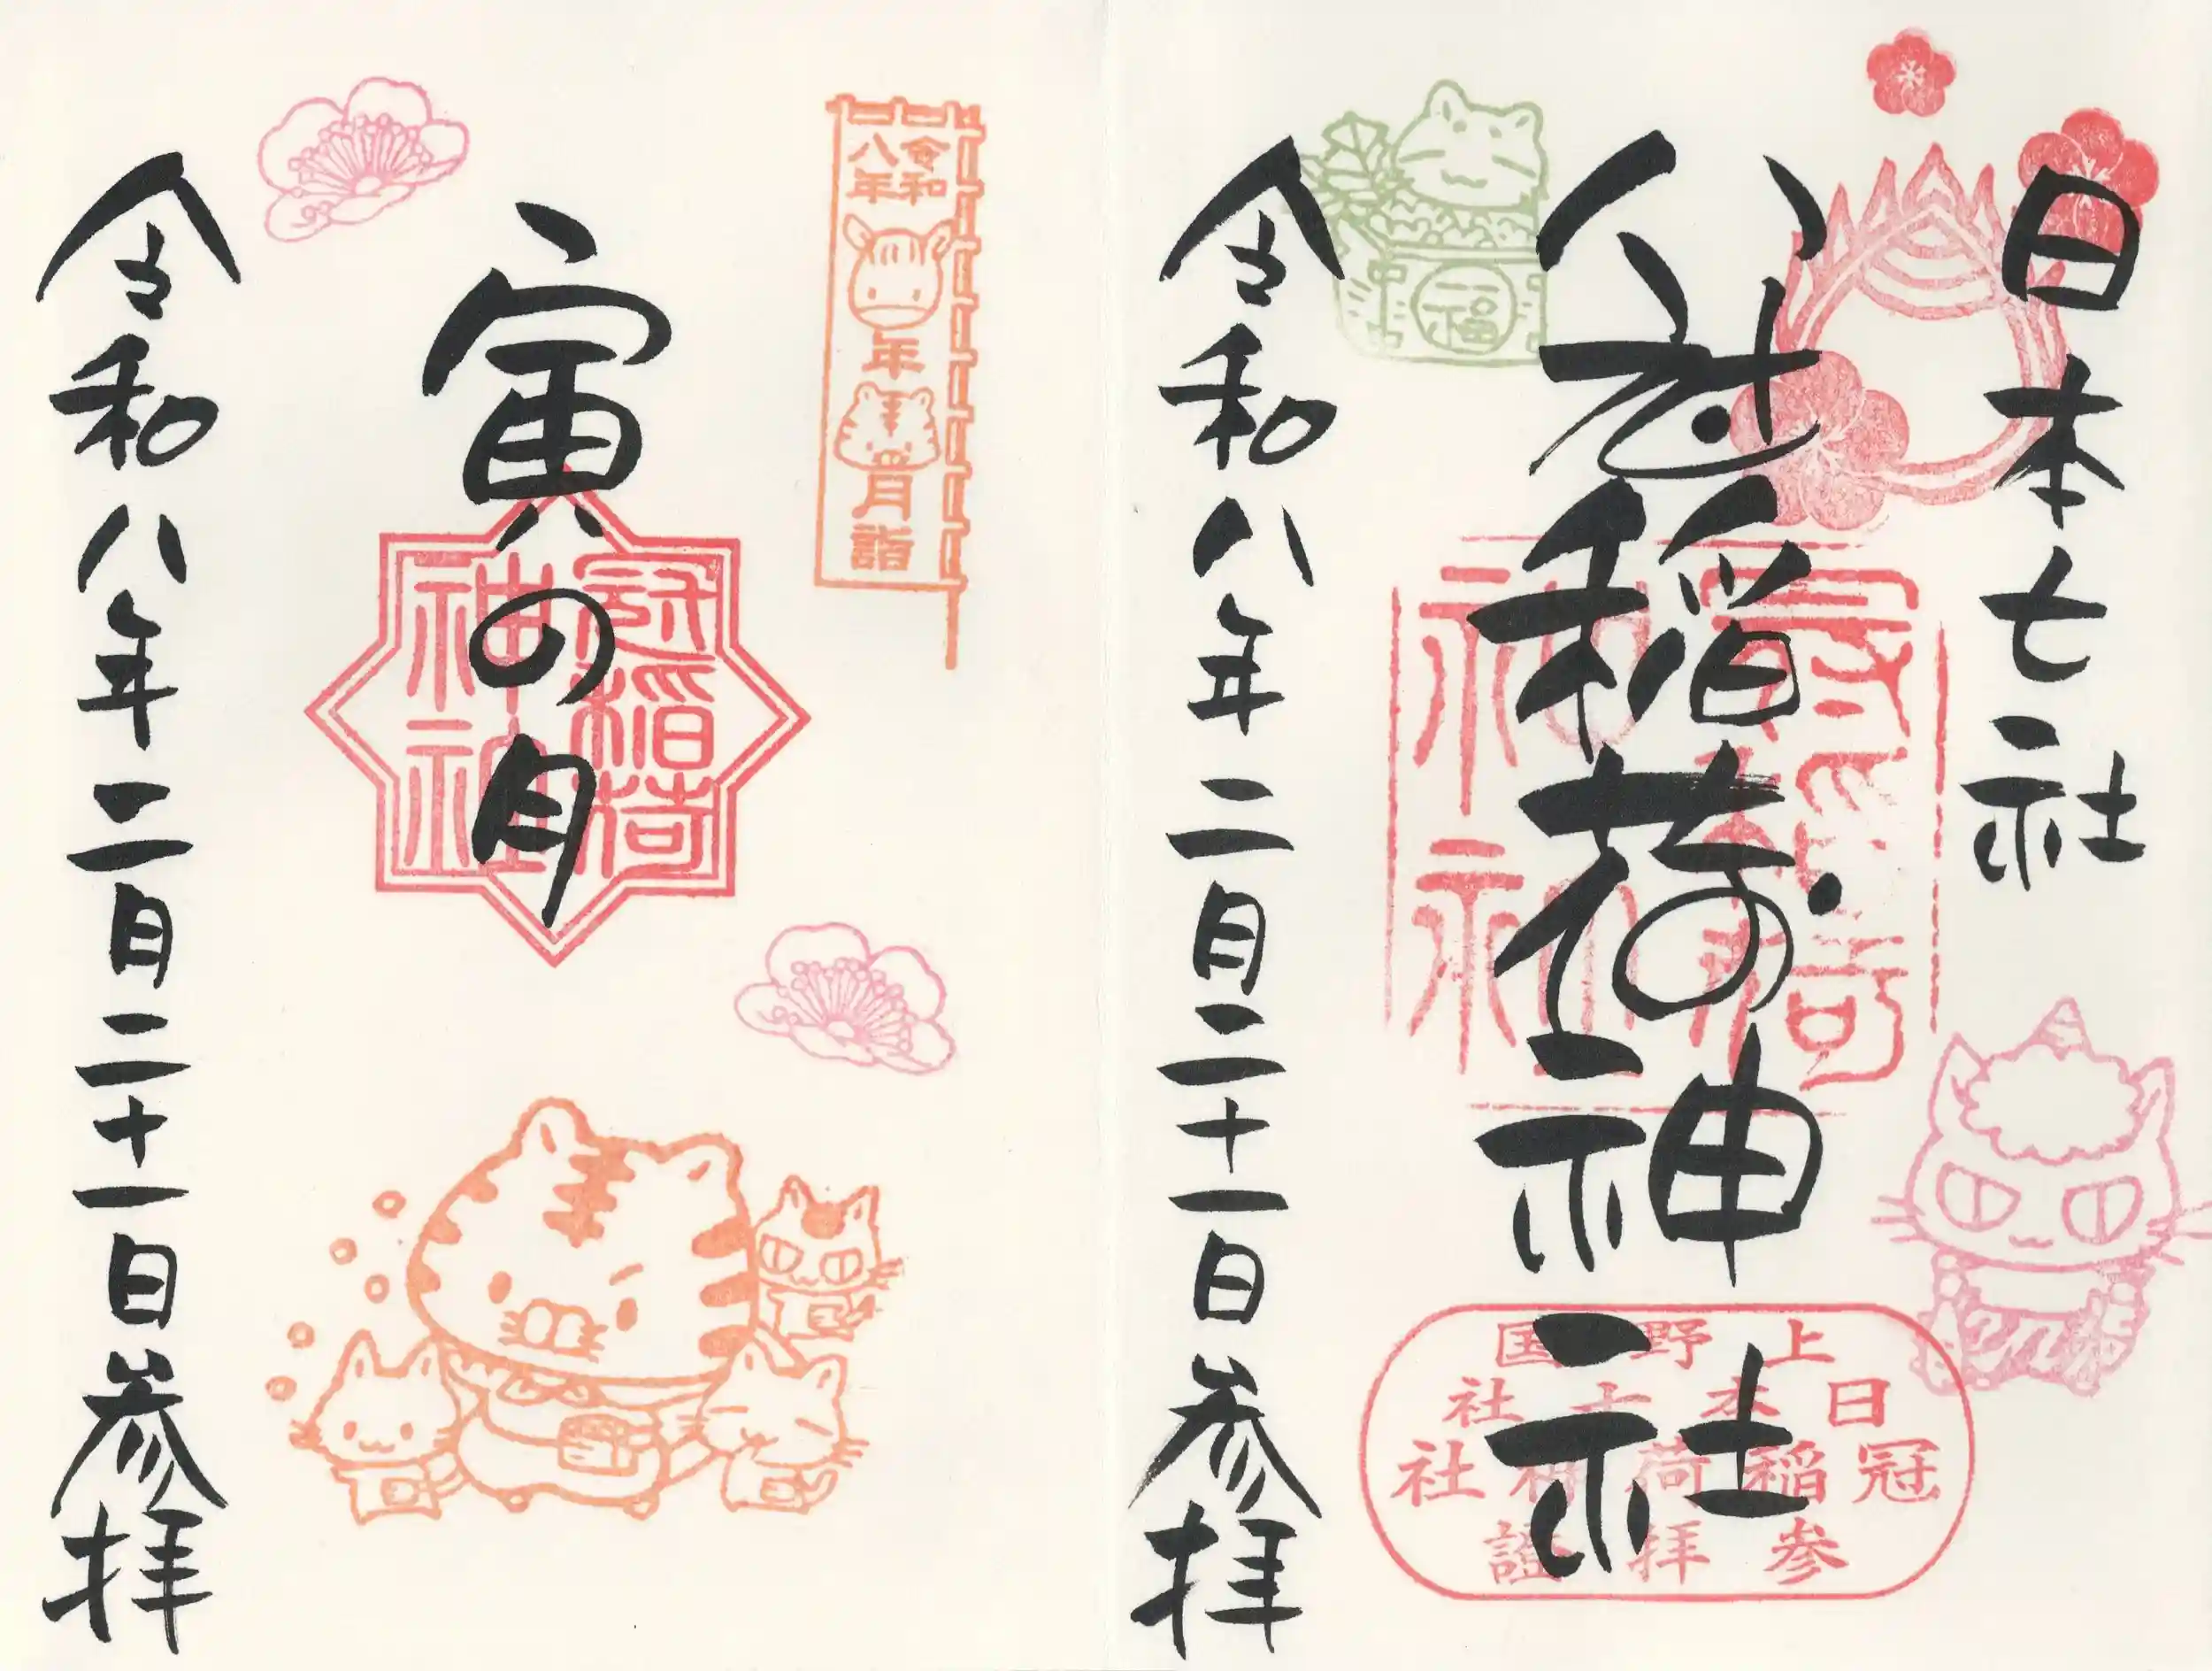 日本七社
冠稲荷神社
令和八年二月二十一日参拝
福
冠稲荷
神社
上野国
日本七社
冠稲荷神社
参拝證
令和
八年
年
月
詣
寅の月
冠稲荷
神社
令和八年二月二十一日参拝